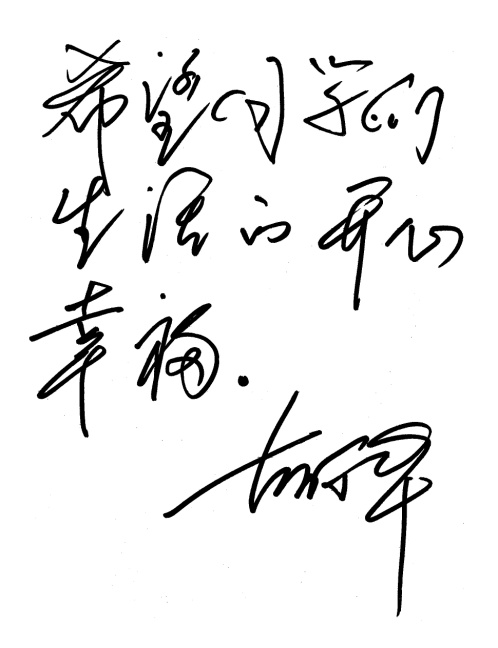 希望同学们
生活的开心
幸福.
胡军